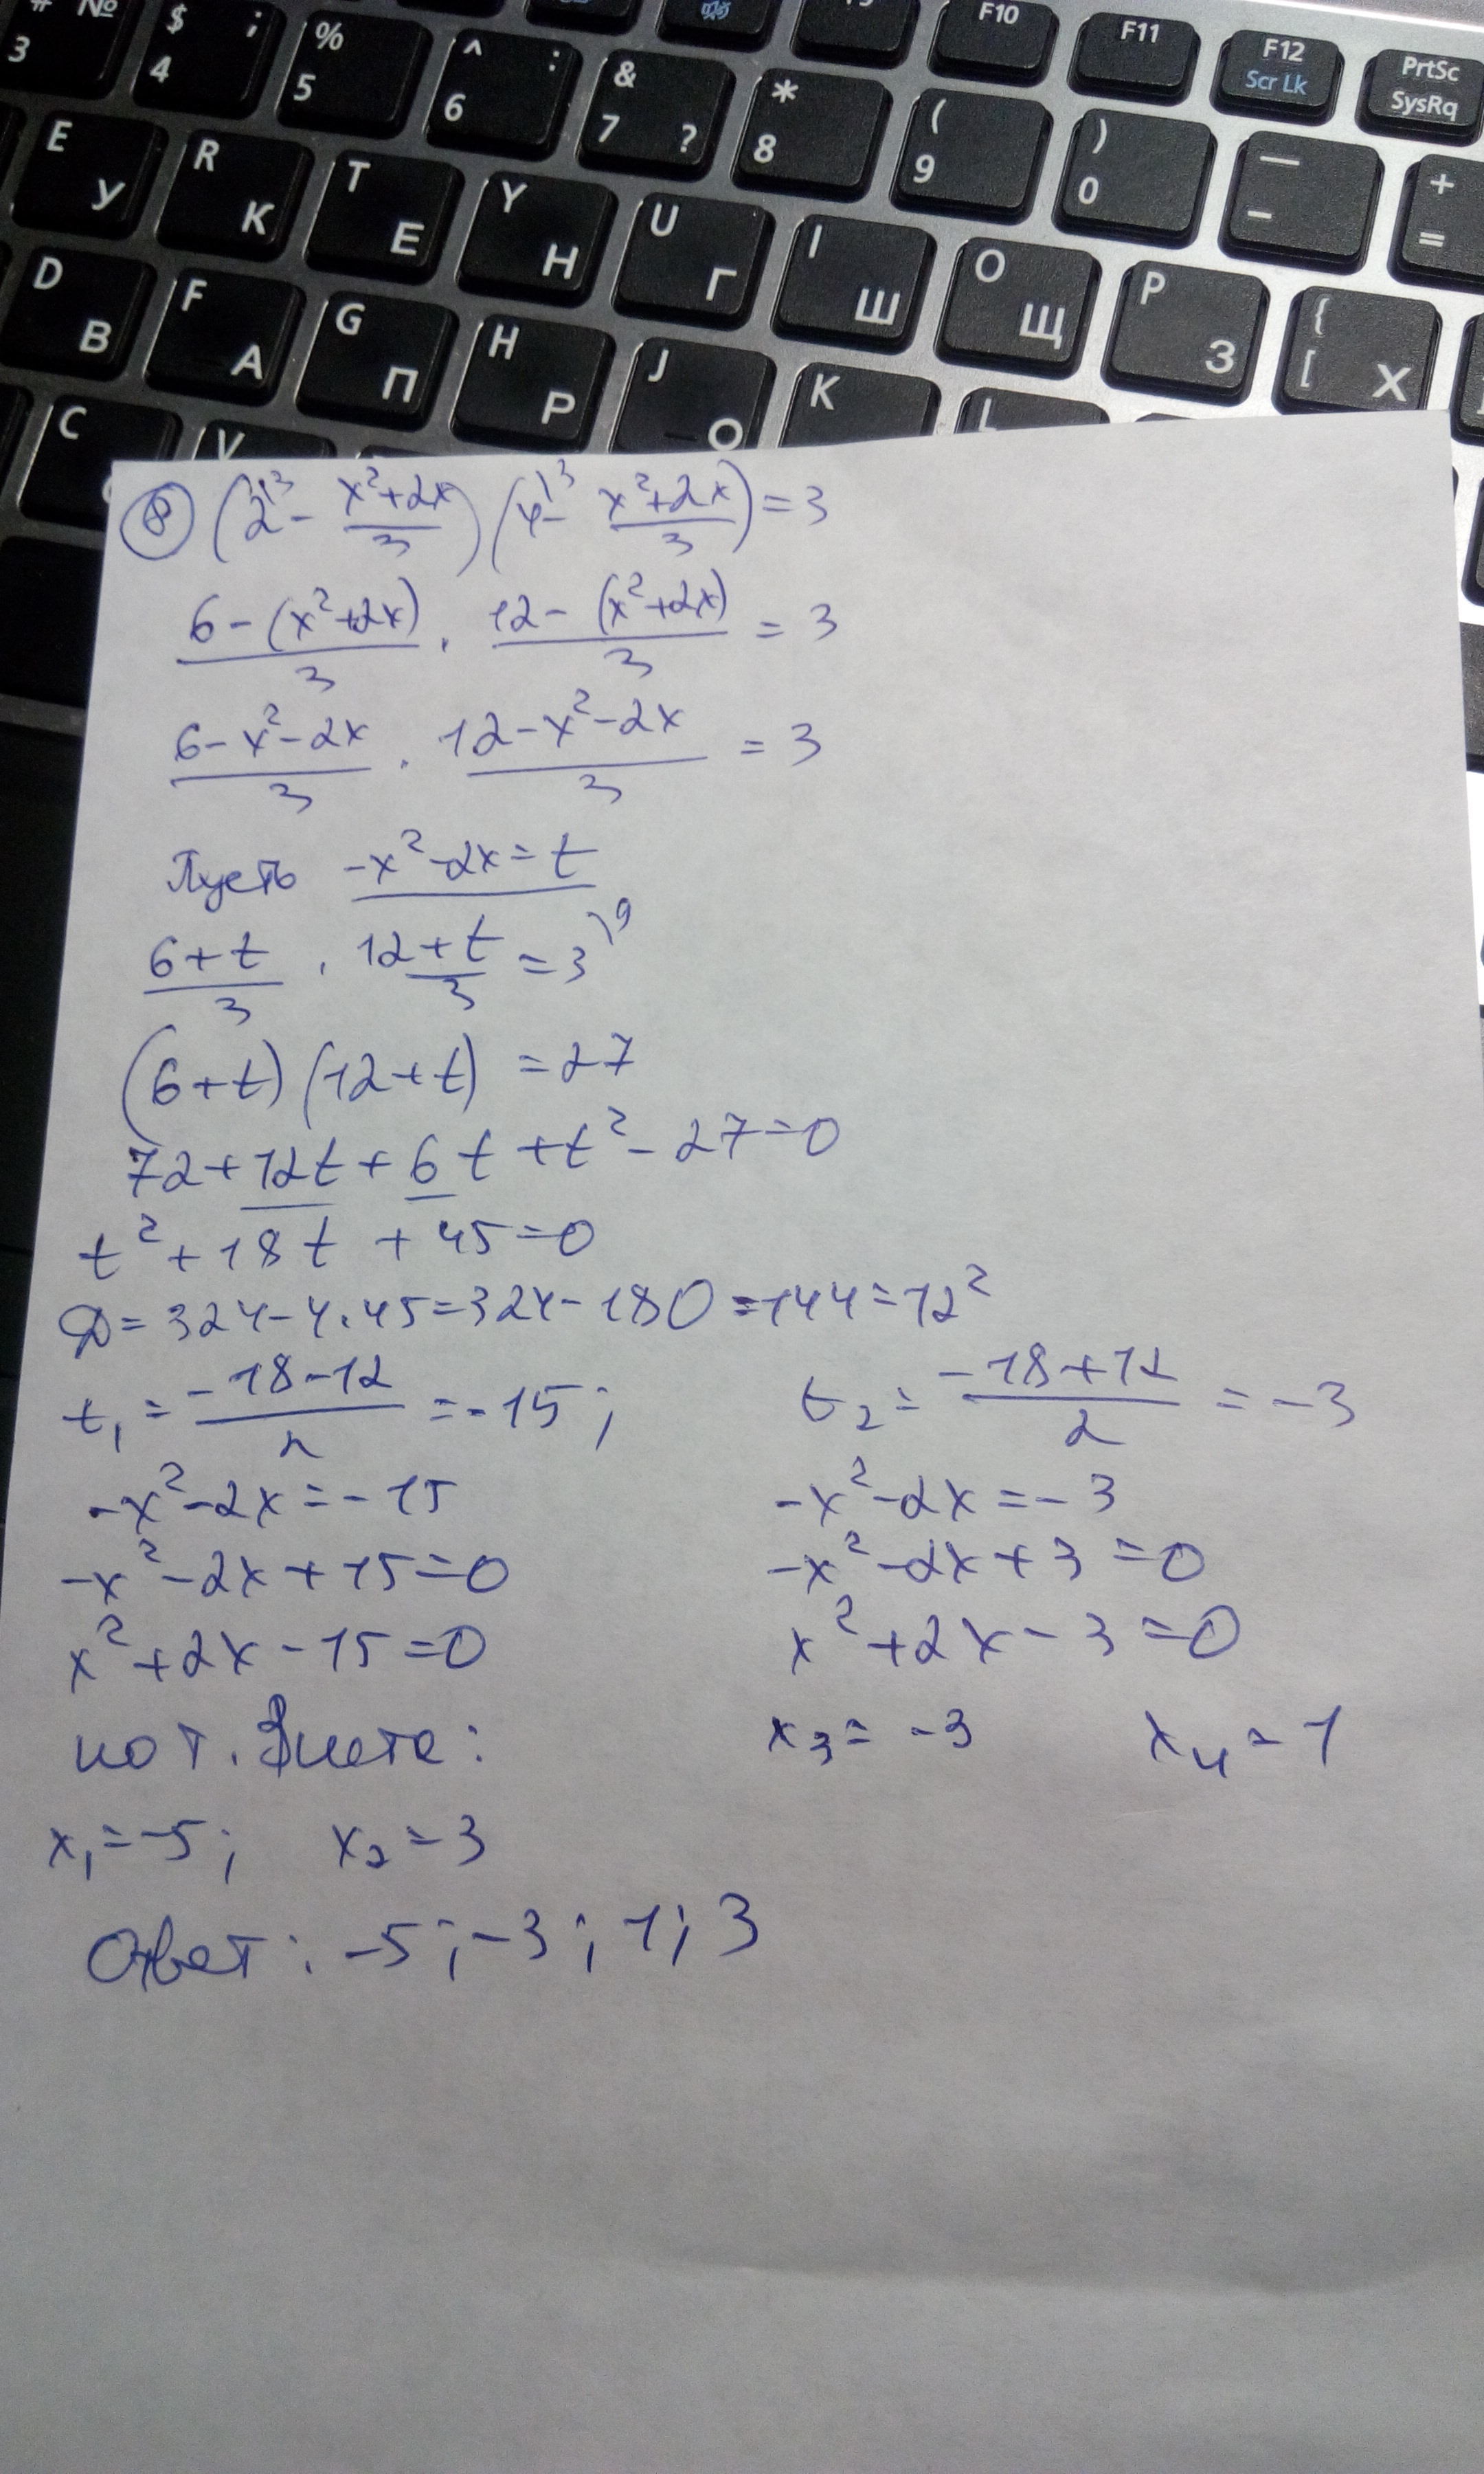 # № 3 $ ; 4 % 5 ^ : 6 & 7 ? * 8 ( 9 ) 0 — - + =
F10 F11 F12 Scr Lk PrtSc SysRq
E У R К T Е Y Н U Г I Ш O Щ P З { [ Х
D В F А G П H Р J О K L
C V
⑧ (2^{\3 - (x²+2x)/3)(4^{\3 - (x²+2x)/3) = 3
(6-(x²+2x))/3 · (12-(x²+2x))/3 = 3
(6-x²-2x)/3 · (12-x²-2x)/3 = 3
Пусть -x²-2x=t
(6+t)/3 · (12+t)/3 = 3^{\9
(6+t)(12+t) = 27
72+12t+6t+t²-27=0
t²+18t+45=0
D=324-4·45=324-180=144=12²
t₁=(-18-12)/2=-15; t₂=(-18+12)/2=-3
-x²-2x=-15 -x²-2x=-3
-x²-2x+15=0 -x²-2x+3=0
x²+2x-15=0 x²+2x-3=0
по т. Виета: x₃=-3 x₄=1
x₁=-5; x₂=3
Ответ: -5; -3; 1; 3